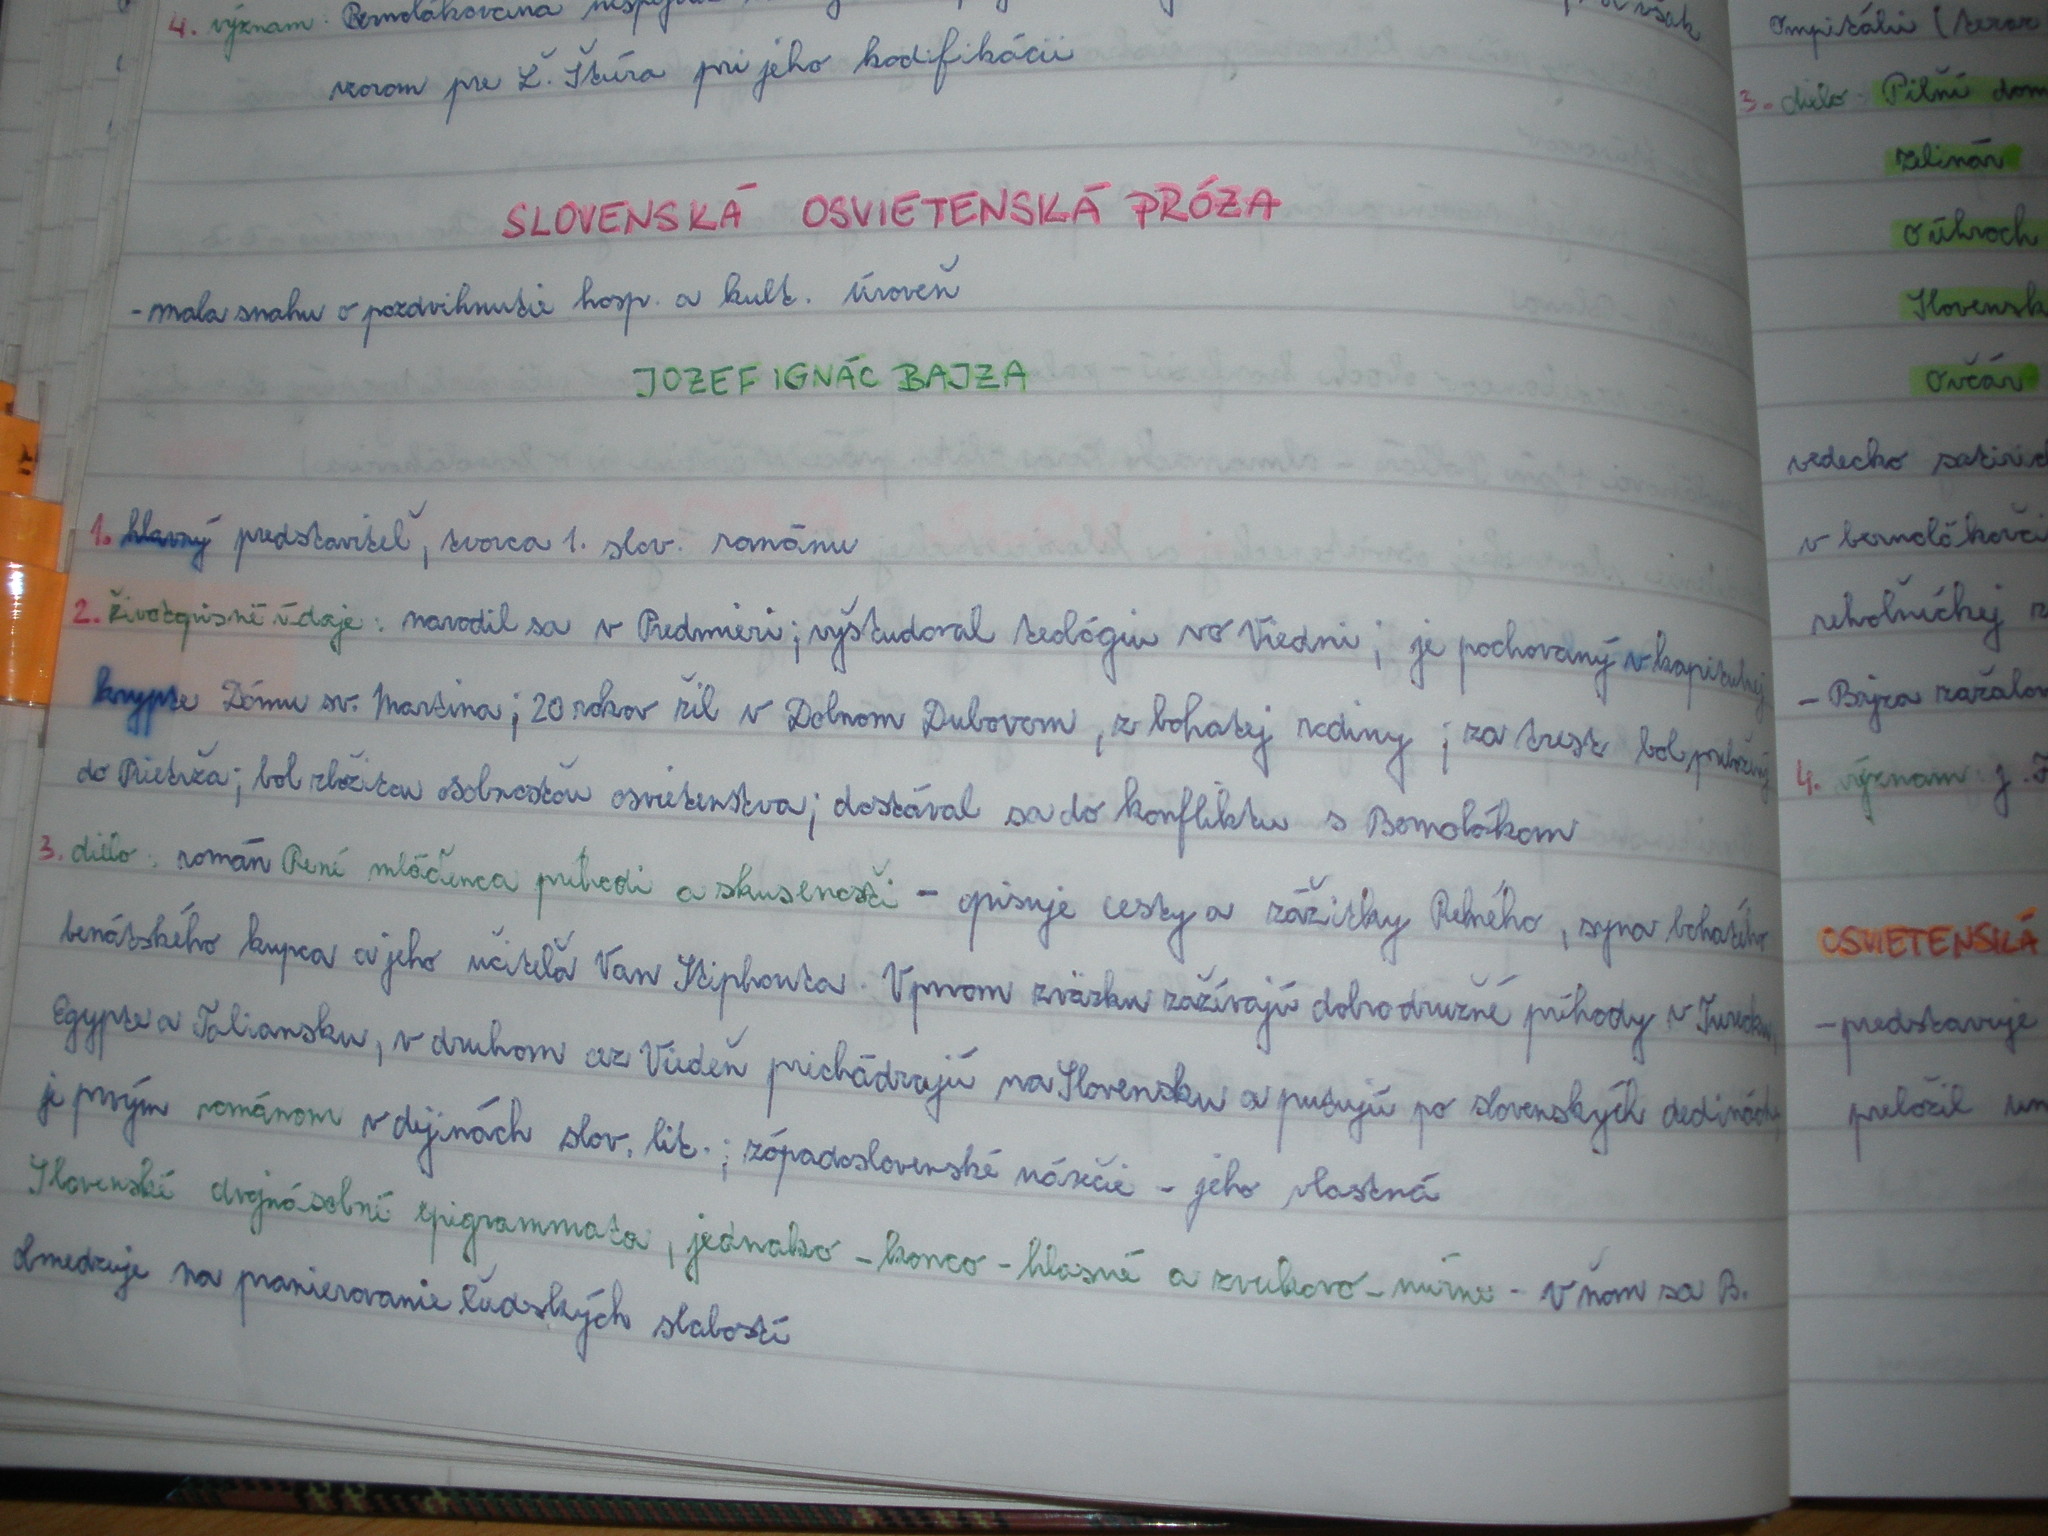 4. význam: Bernolákovčina
však
vzorom pre Ľ. Štúra pri jeho kodifikácii
SLOVENSKÁ OSVIETENSKÁ PRÓZA
- mala snahu o pozdvihnutie hosp. a kult. úroveň
JOZEF IGNÁC BAJZA
1. hlavný predstaviteľ, tvorca 1. slov. románu
2. životopisné údaje: narodil sa v Predmieri; vyštudoval teológiu vo Viedni; je pochovaný v kapitulnej
krypte Dómu sv. Martina; 20 rokov žil v Dolnom Dubovom, z bohatej rodiny; za trest bol preložený
do Prietrža; bol zložitou osobnosťou osvietenstva; dostával sa do konfliktu s Bernolákom
3. dielo: román René mláďenca príhodi a skusenosťi - opisuje cesty a zážitky Reného, syna bohatého
benátskeho kupca a jeho učiteľa Van Stiphouta. V prvom zväzku zažívajú dobrodružné príhody v Turecku,
Egypte a Taliansku, v druhom cez Viedeň prichádzajú na Slovensku a putujú po slovenských dedinách,
je prvým románom v dejinách slov. lit.; západoslovenské nárečie - jeho vlastná
Slovenské dvojnásobné epigrammata, jednako - konco - hlasné a zvukovo - mírne - V ňom sa B.
obmedzuje na pranierovanie ľudských slabostí
3. dielo: Pilňí dom
zelinár
O úhroch
Slovensk
Ovčár
vedecko
v bernolákovči
reholníckej
- Bajza
4. význam: J.
OSVIETENSKÁ
- predstavuje
preložil